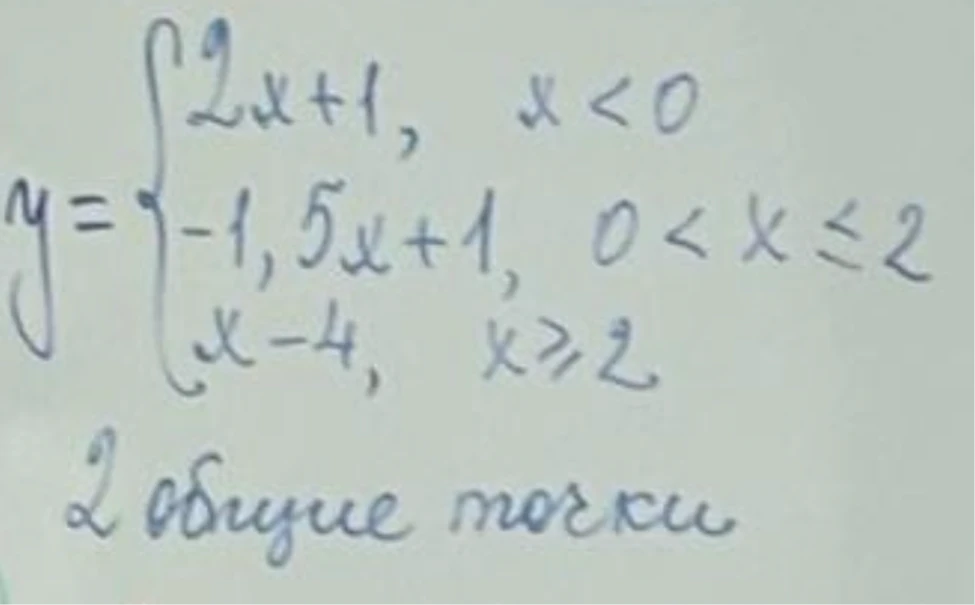 y = { 2x+1, x < 0
-1,5x+1, 0 < x ≤ 2
x-4, x ⩾ 2
2 общие точки